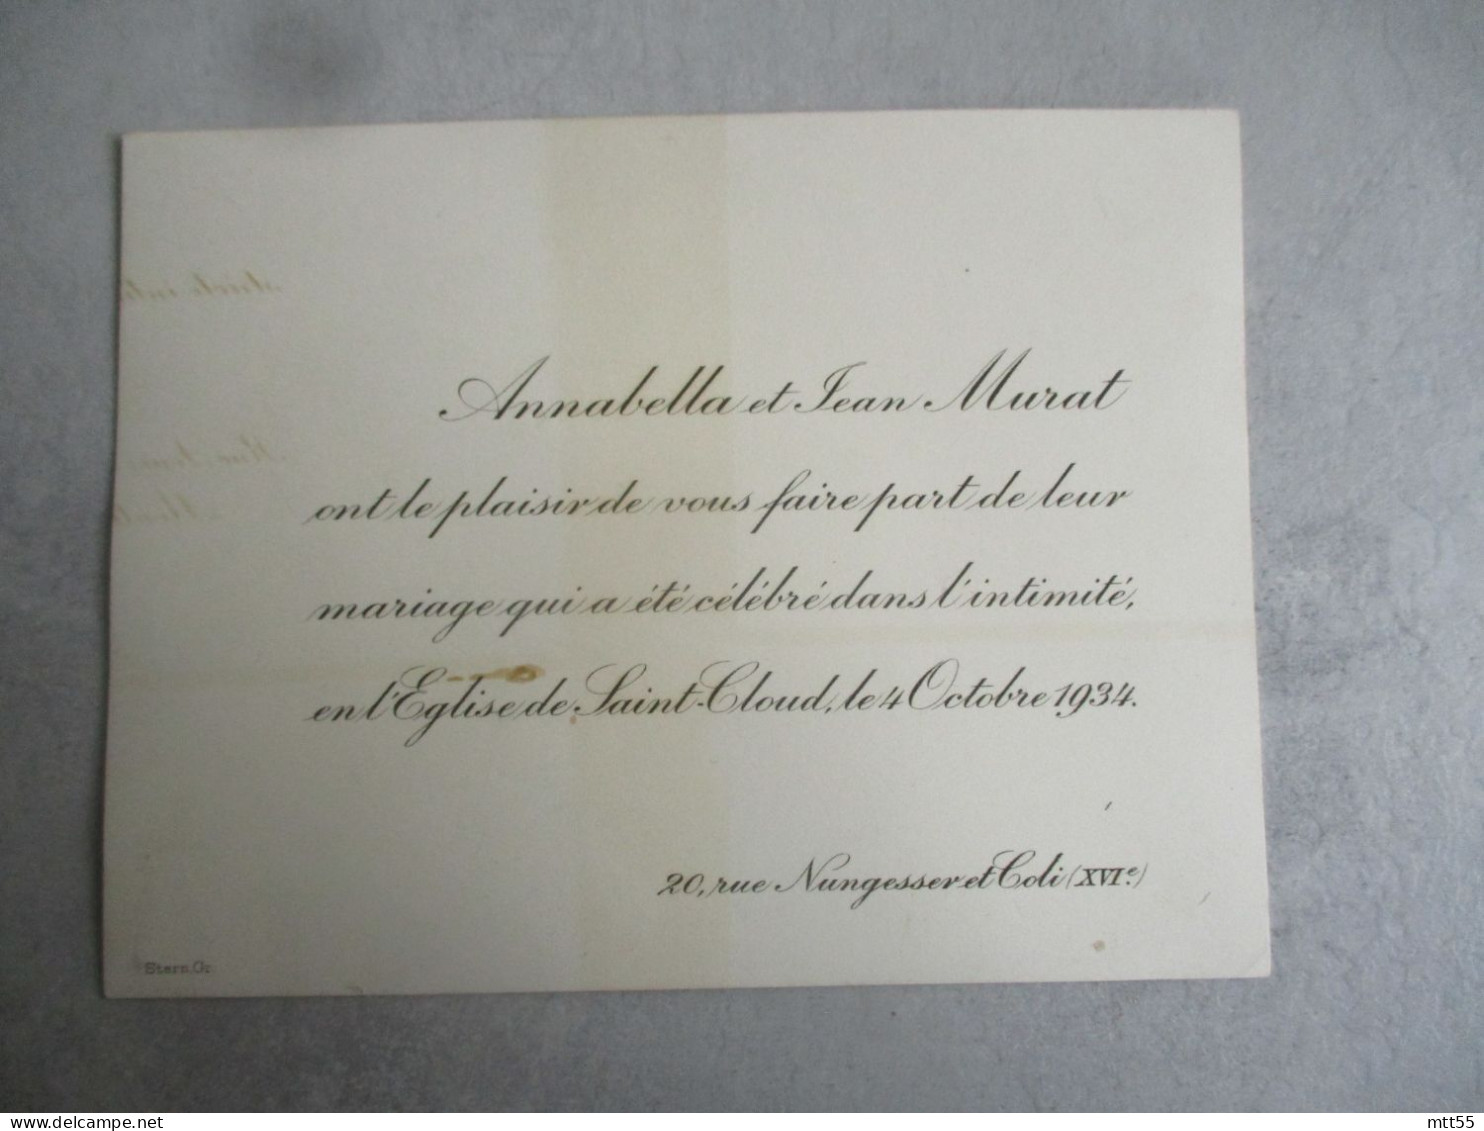 Annabella et Jean Murat
ont le plaisir de vous faire part de leur
mariage qui a été célébré dans l'intimité,
en l'Eglise de Saint-Cloud, le 4 Octobre 1934.
20, rue Nungesser et Coli (XVIe)
Stern. Gr.
www.delcampe.net
mtt55